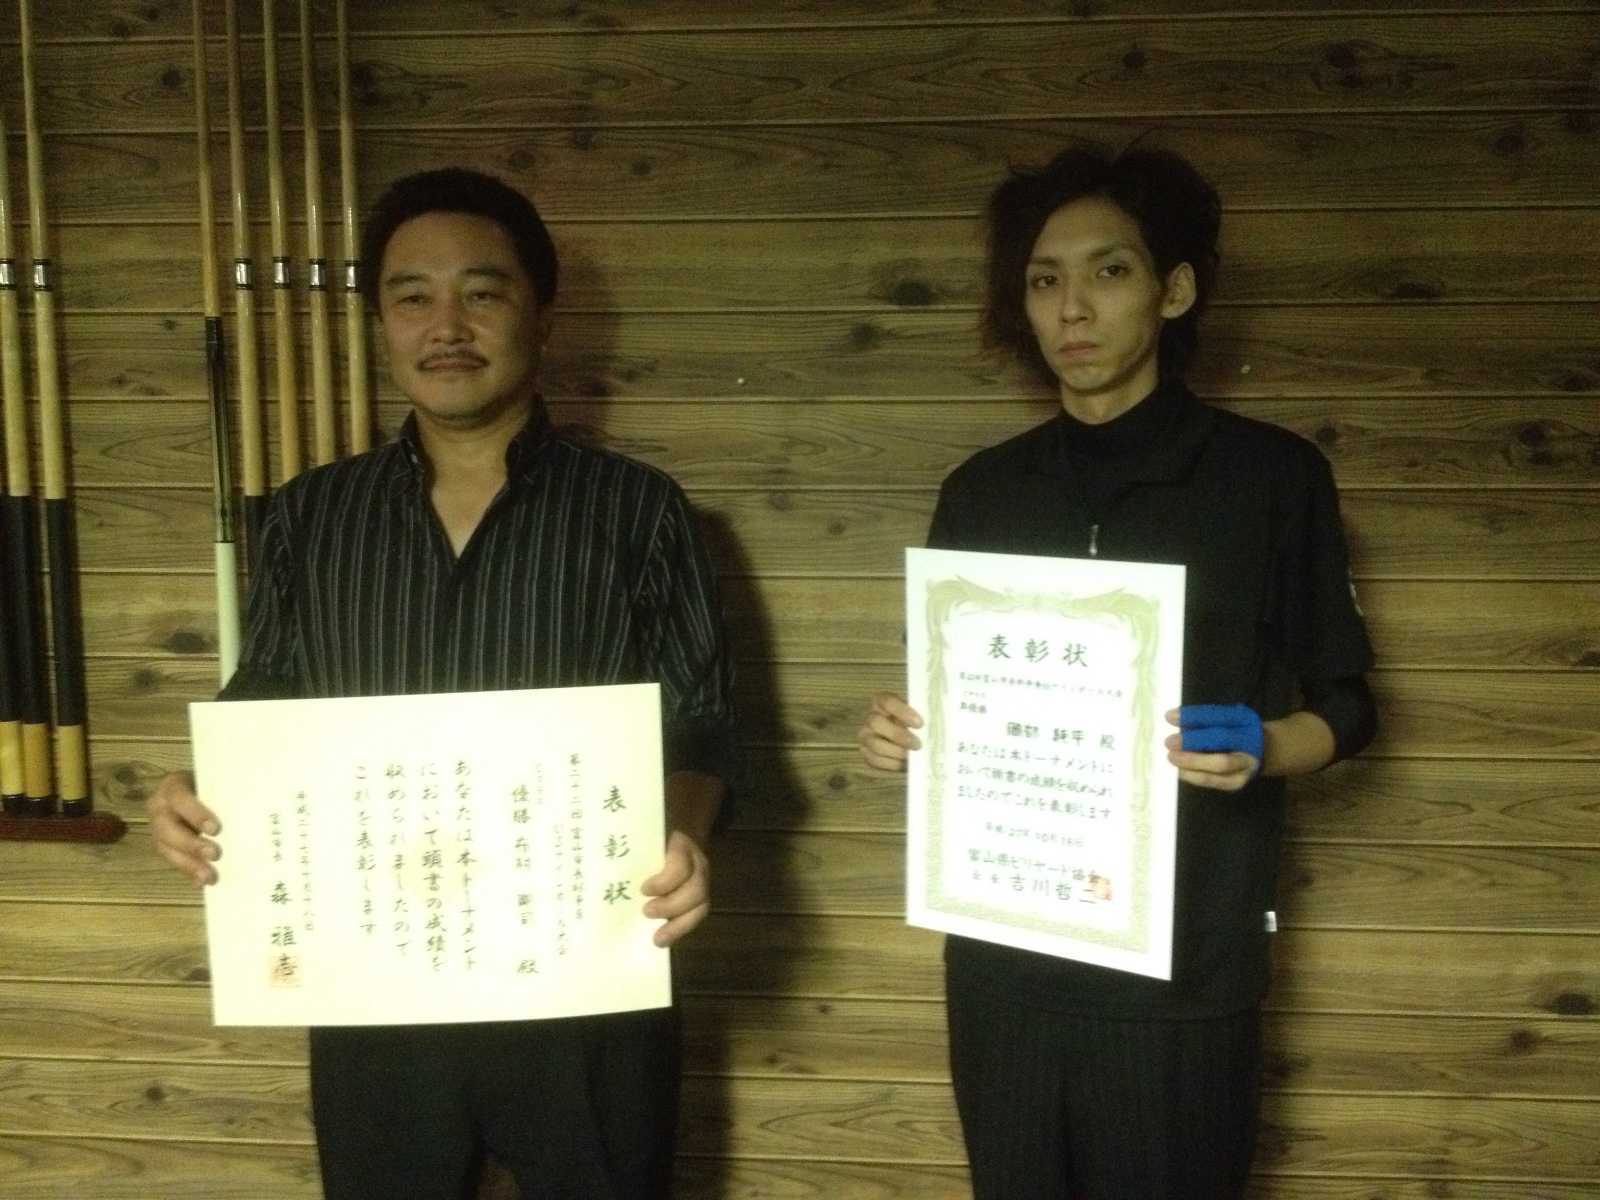 表彰状
第二十二回富山市長杯争奪
ナインボール大会
優勝
殿
あなたは本トーナメント
において頭書の成績を
収められましたので
これを表彰します
平成二十七年十月十八日
富山市長 森 雅志
表彰状
準優勝
殿
あなたは本トーナメントに
おいて頭書の成績を収められ
ましたのでこれを表彰します
富山県ビリヤード協会
会長 吉川哲二